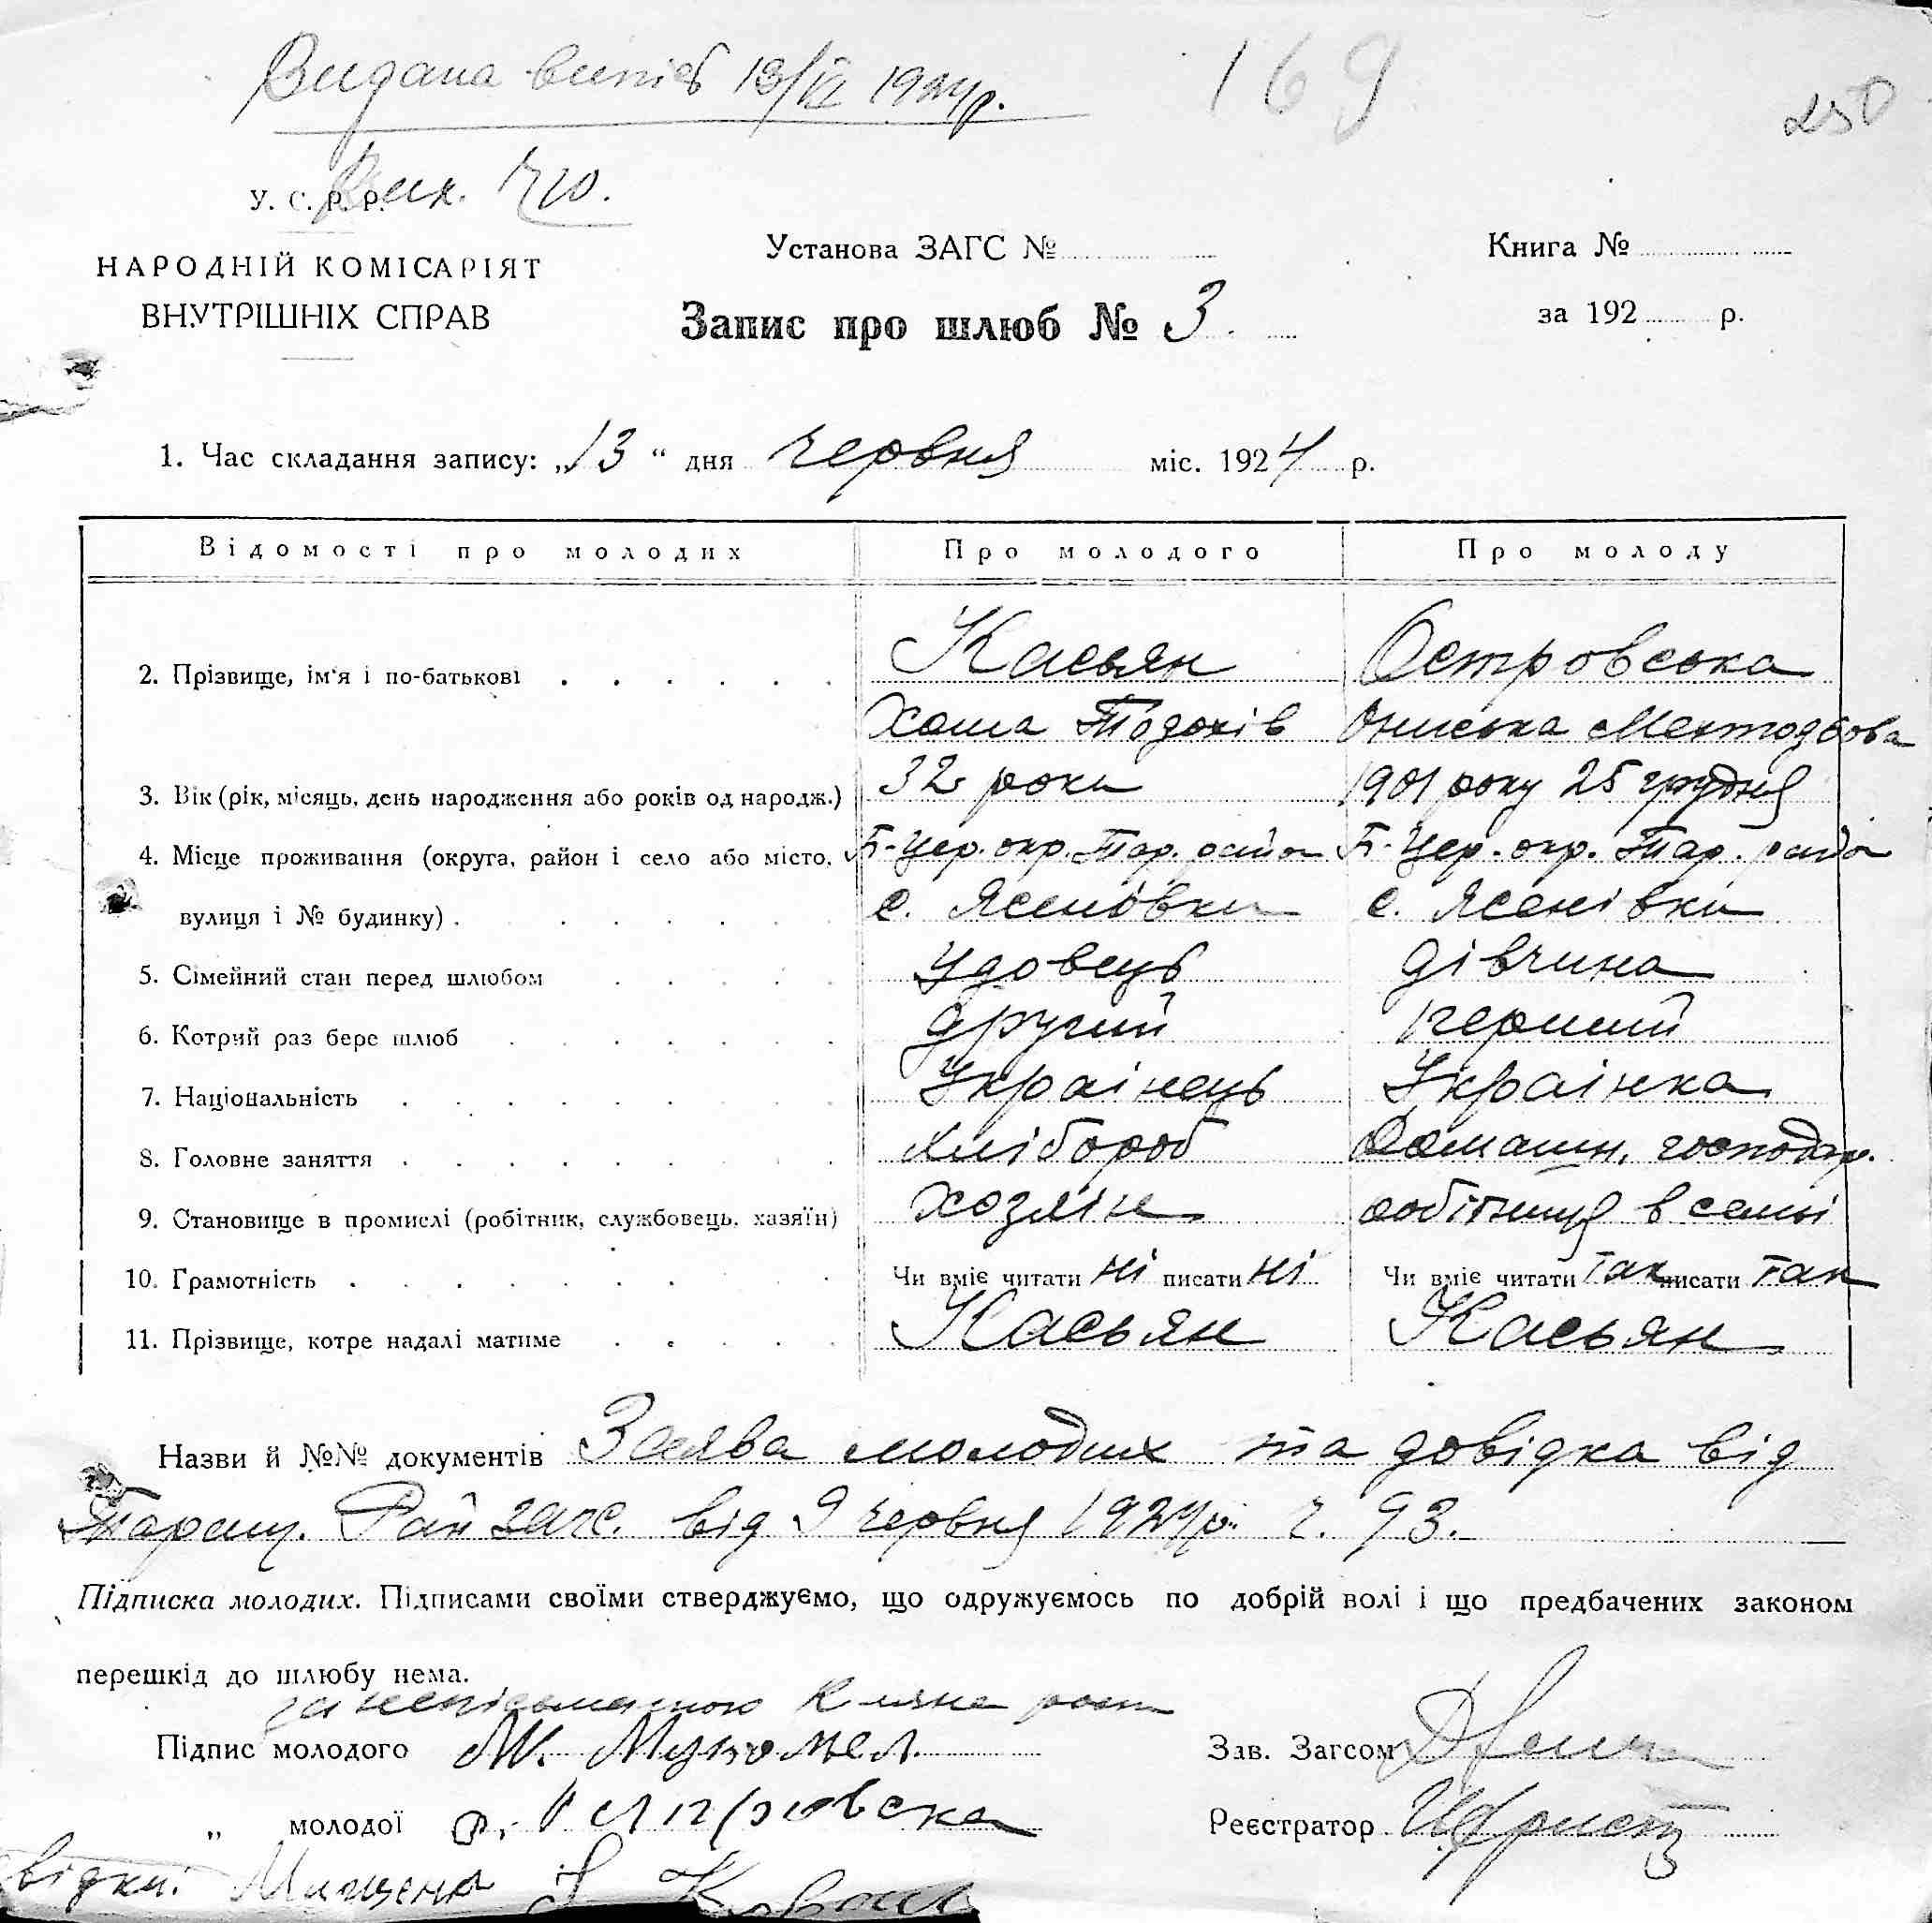 Видана випісь 13/VI 1924 р.
169
250
У. С. Р. Р.
НАРОДНІЙ КОМІСАРІЯТ
ВНУТРІШНІХ СПРАВ
Установа ЗАГС №
Книга №
Запис про шлюб № 3.
за 192 р.
1. Час складання запису: „13“ дня червня міс. 1924 р.
Відомості про молодих Про молодого Про молоду
2. Прізвище, ім'я і по-батькові Касьян Островська
Хома Тодохів Ониська
3. Вік (рік, місяць, день народження або років од народж.) 32 роки 1901 року 25 грудня
4. Місце проживання (округа, район і село або місто, Б-Цер. окр. Тар. район Б-Цер. окр. Тар. район
вулиця і № будинку) с. Ясеновки с. Ясенівки
5. Сімейний стан перед шлюбом Удовець дівчина
6. Котрий раз бере шлюб другий перший
7. Національність Украінець Украінка
8. Головне заняття хлібороб Домашн. господар.
9. Становище в промислі (робітник, службовець, хазяїн) хозяін робітниця в семьі
10. Грамотність Чи вміє читати ні писати ні Чи вміє читати так писати так
11. Прізвище, котре надалі матиме Касьян Касьян
Назви й №№ документів Заява молодих та довідка від
Таращ. Райзагс. від 9 червня 1924р. ч. 93.
Підписка молодих. Підписами своїми стверджуємо, що одружуємось по добрій волі і що предбачених законом
перешкід до шлюбу нема.
за
Підпис молодого М.
Зав. Загсом
„ молодої О. Островска
Реєстратор